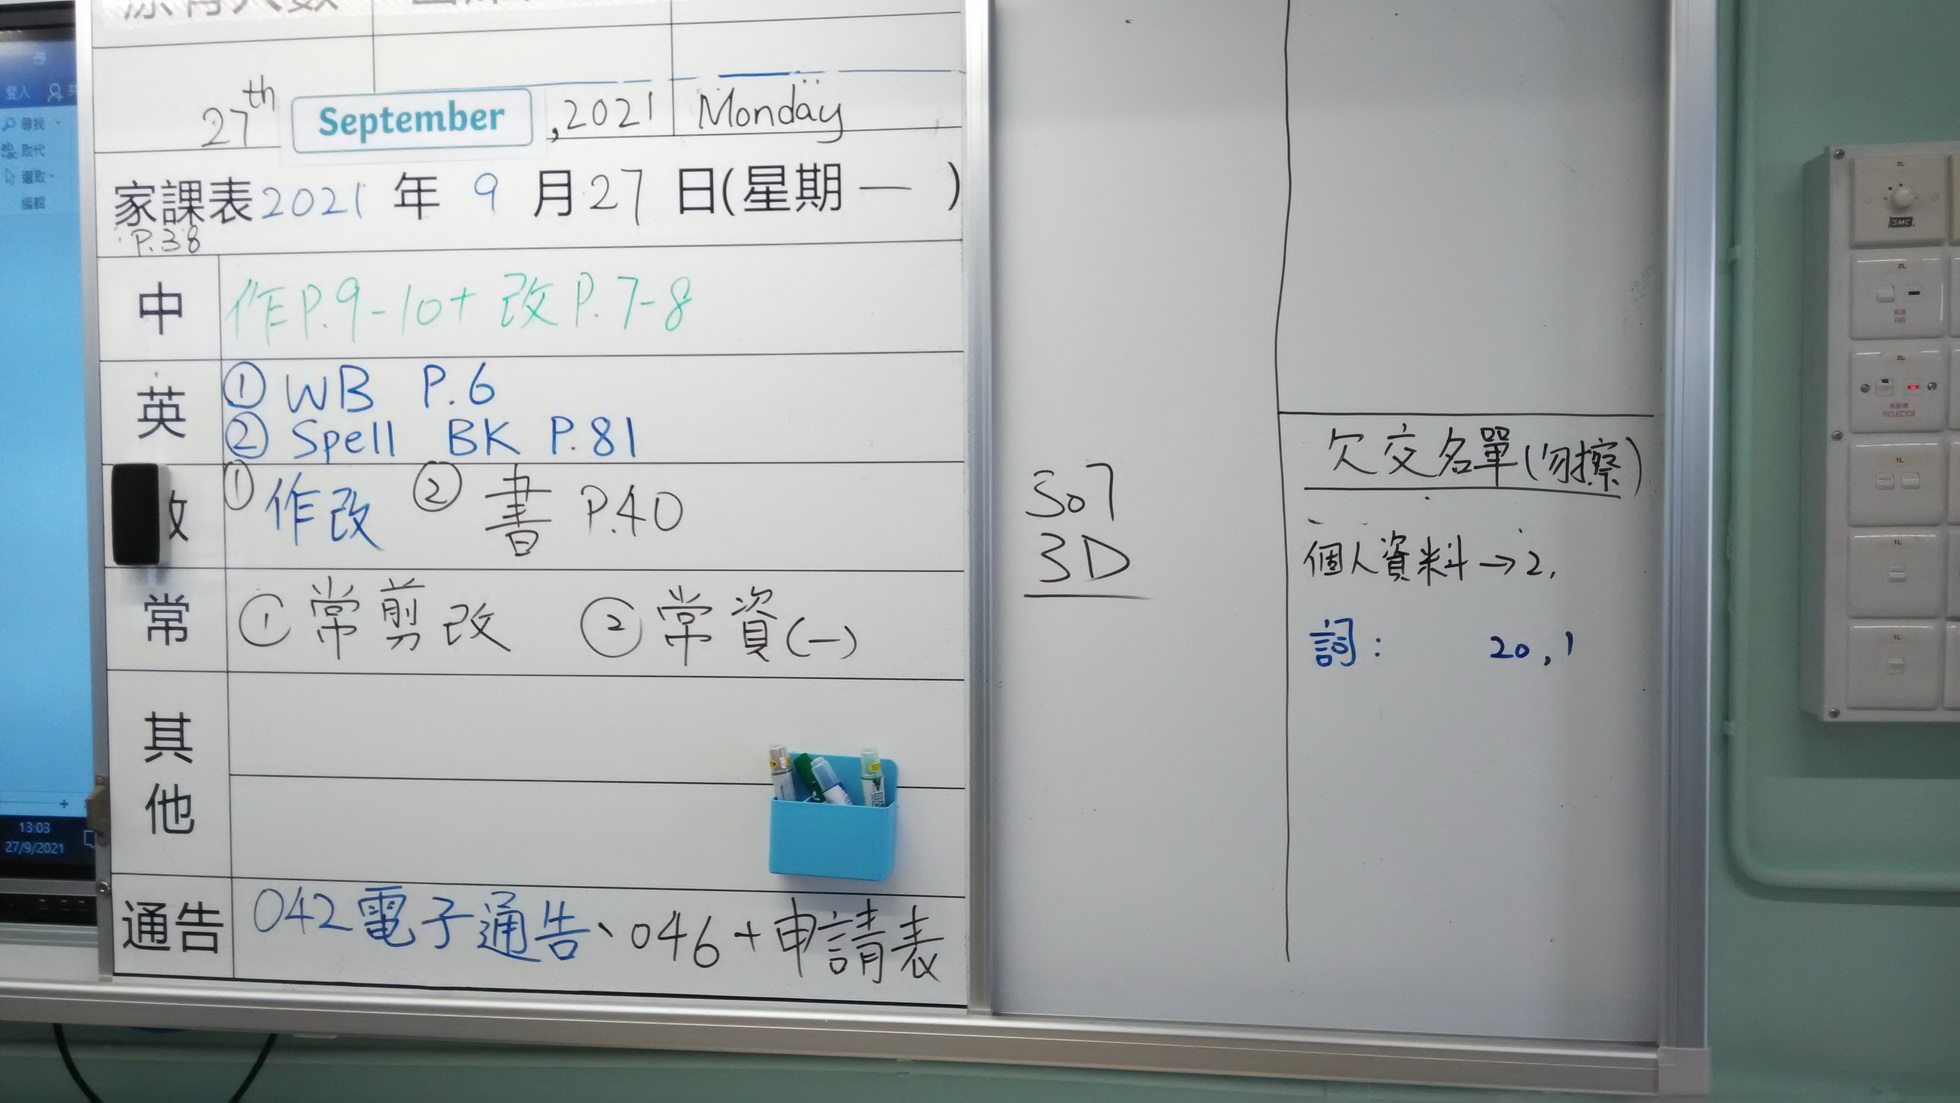 27th September ,2021 Monday
家課表2021 年 9 月27 日(星期一 )
P.38
中 作P.9-10+ 改P.7-8
英 ① WB P.6
② Spell BK P.81
①作改 ② 書 P.40
常 ① 常剪改 ② 常資(一)
其他
通告 042電子通告、046+申請表
307
3D
欠交名單(勿擦)
個人資料→2,
詞: 20,1
登入
尋找
取代
選取
編輯
13:03
27/9/2021
SMC
PROJECTOR